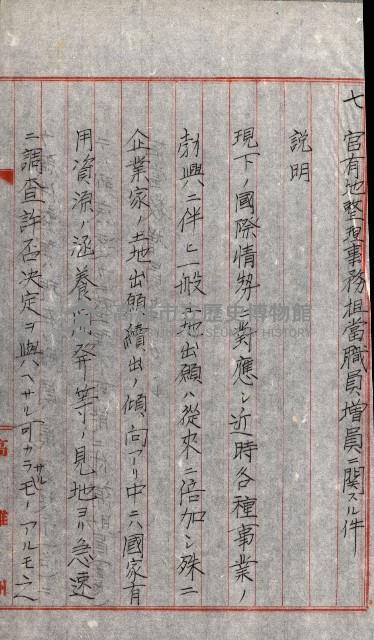 七 官有地整理事務担當職員増員ニ関スル件
説明
現下ノ國際情勢ニ對應シ近時各種事業ノ
勃興ニ伴ヒ一般土地出願ハ從来ニ倍加シ殊ニ
企業家ノ土地出願續出ノ傾向アリ中ニハ國家有
用資源ノ涵養開発等ノ見地ヨリ急速
ニ調査許否决定ヲ與ヘサル可カラサルモノアルモ
高雄州
歷史博物館
MUSEUM OF HISTORY